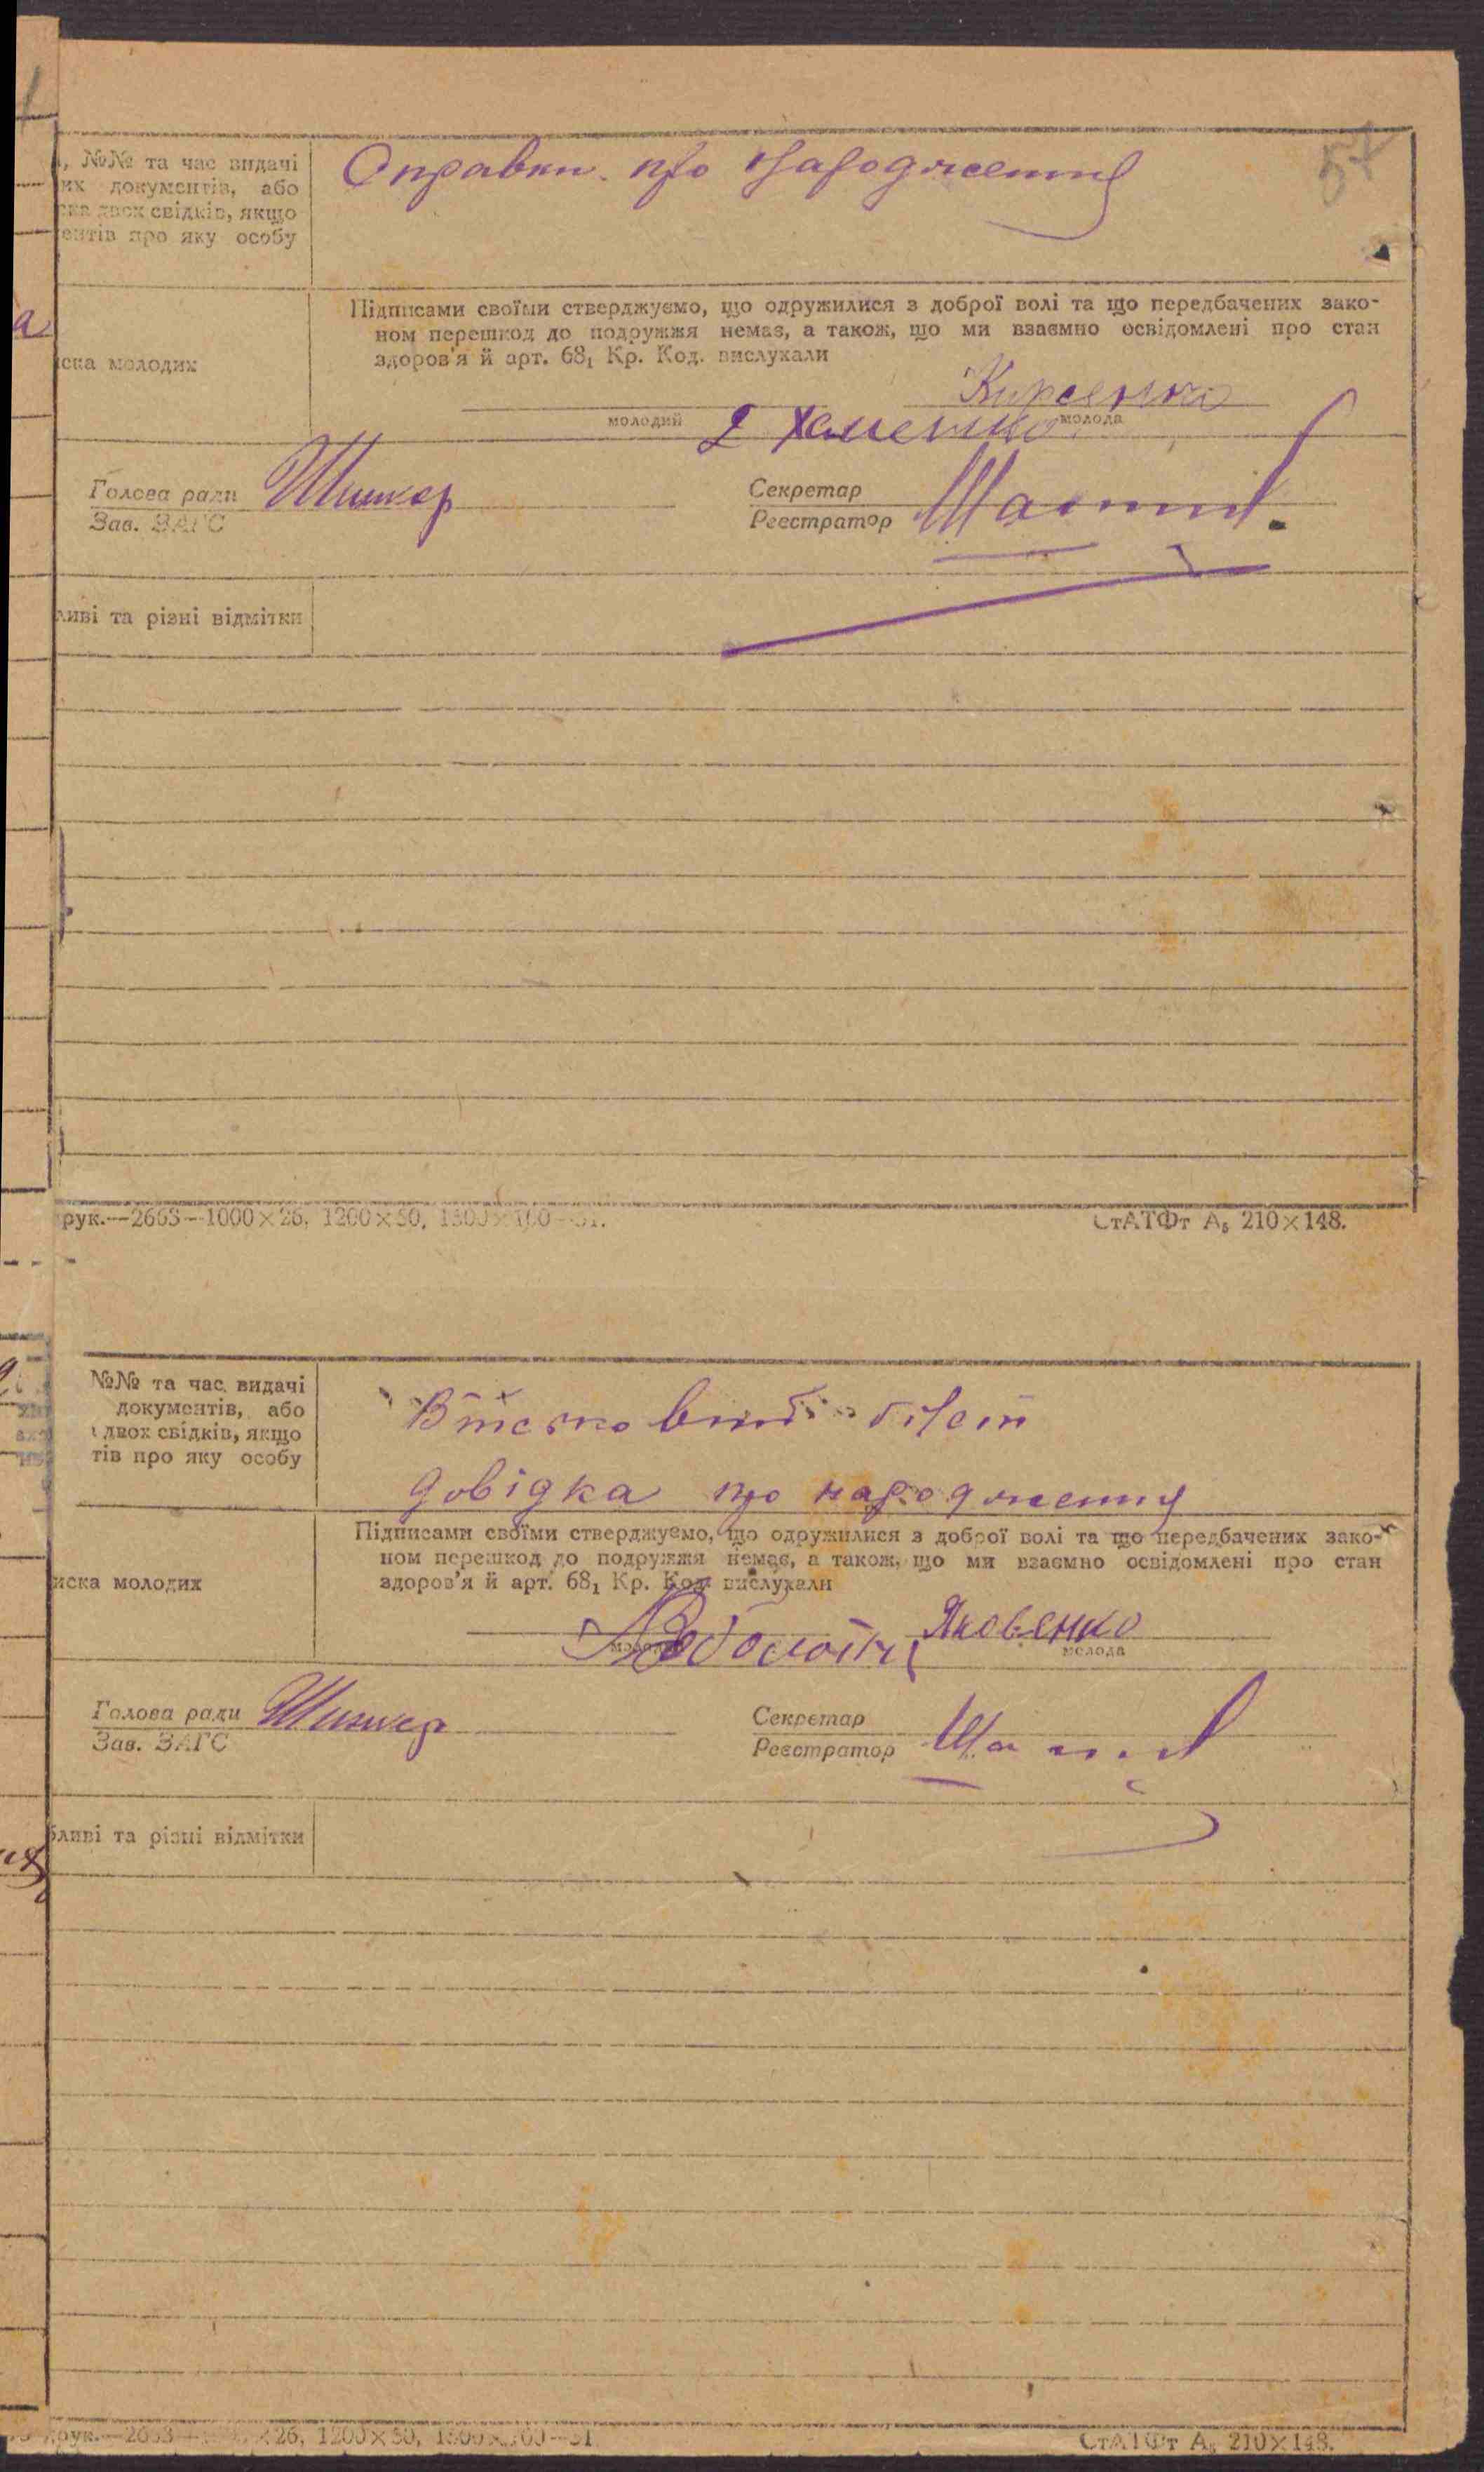 57
, №№ та час видачі
их документів, або
ска двох свідків, якщо
ентів про яку особу
Справки про Народження
Підписами своїми стверджуємо, що одружилися з доброї волі та що передбачених зако-
ном перешкод до подружжя немає, а також, що ми взаємно освідомлені про стан
здоров'я й арт. 68₁ Кр. Код. вислухали
иска молодих
молодий
молода
Голова ради
Зав. ЗАГС
Секретар
Реєстратор
ливі та різні відмітки
рук.—2663—1000×26, 1200×50, 1300×100—31.
СтАТФт А₅ 210×148.
№№ та час видачі
документів, або
двох свідків, якщо
тів про яку особу
Військовий білет
довідка про народження
Підписами своїми стверджуємо, що одружилися з доброї волі та що передбачених зако-
ном перешкод до подружжя немає, а також, що ми взаємно освідомлені про стан
здоров'я й арт. 68₁ Кр. Код. вислухали
иска молодих
Яковенко
молода
Голова ради
Зав. ЗАГС
Секретар
Реєстратор
бливі та різні відмітки
рук.—2663— ×26, 1200×50, 1300×100—31
СтАТФт А₅ 210×148.